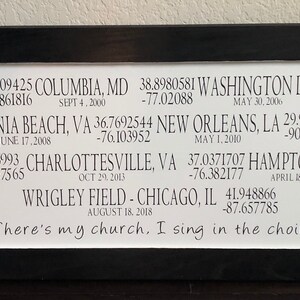 09425 COLUMBIA, MD 38.8980581 WASHINGTON D
861816 SEPT 4, 2000 -77.02088 MAY 30, 2006
NIA BEACH, VA 36.7692544 NEW ORLEANS, LA 29.9
JUNE 17, 2008 -76.103952 MAY 1, 2010 -90
3993 CHARLOTTESVILLE, VA 37.0371707 HAMPT
7565 OCT 29, 2013 -76.382177 APRIL 18
WRIGLEY FIELD - CHICAGO, IL 41.948866
AUGUST 18, 2018 -87.657785
There's my church, I sing in the choi